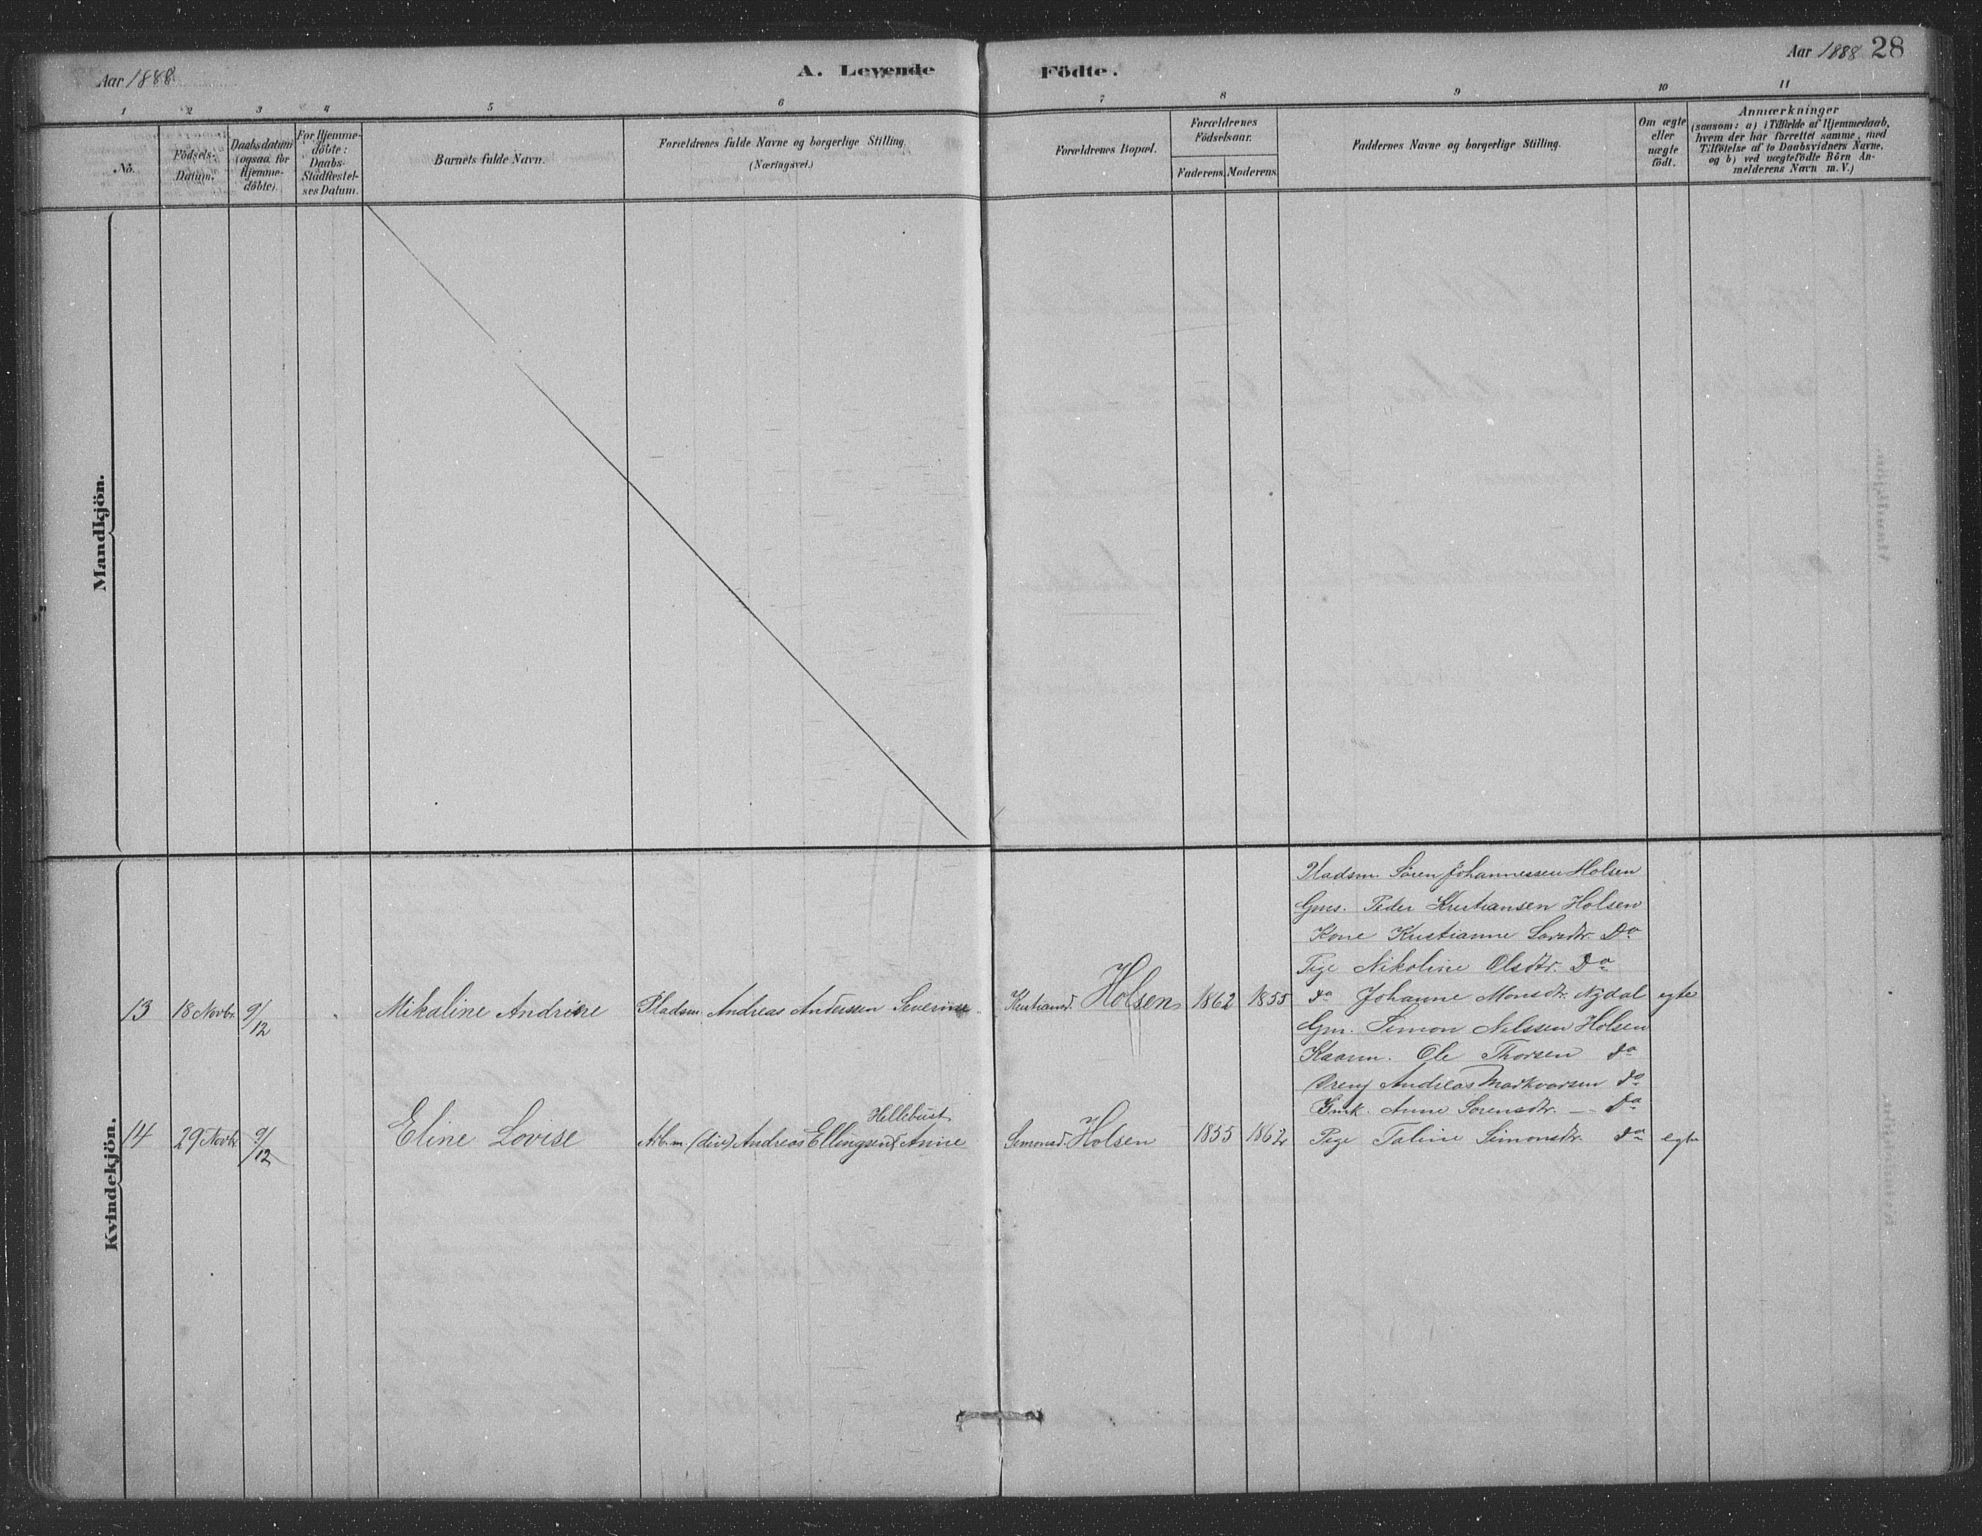 Aar 1888.
A. Levende
Fødte.
Aar 1888 28
1 2 3 4 5 6 7 8 9 10 11
No.
Fødsels-
Datum.
Daabsdatum
(ogsaa for
Hjemme-
døbte).
For Hjemme-
døbte:
Daabs-
Stadfæstel-
ses Datum.
Barnets fulde Navn.
Forældrenes fulde Navne og borgerlige Stilling.
(Næringsvei.)
Forældrenes Bopæl.
Forældrenes
Fødselsaar.
Faderens. Moderens.
Faddernes Navne og borgerlige Stilling.
Om ægte
eller
uægte
født.
Anmærkninger
(saasom: a) i Tilfælde af Hjemmedaab,
hvem der har forrettet samme, med
Tilføielse af to Daabsvidners Navne,
og b) ved uægtefødte Børn An-
melderens Navn m. V.)
Mandkjøn.
Kvindekjøn.
Pladsm. Søren Johannessen Holsen
Gms. Peder Kristiansen Holsen
Kone Kristianne Larsdtr. Do
Pige Nikoline Olsdtr. Do
13 18 Novbr. 9/12 Mikaline Andrine Pladsm. Andreas Anderssen Severine Kristiansd. Holsen 1862 1855 Do Johanne Monsdtr. Nydal egte
Gm. Simon Nilssen Holsen
Kaarm. Ole Thorsen do
Dreng Andreas Markvorsen do
Gmk. Anne Sørensdtr. — Do
Hellebust
14 29 Novbr. 9/12 Eline Lovise Arb.m. (div) Andreas Ellingsen Anne Simonsd. Holsen 1855 1862 Pige Taline Simonsdtr. do egte